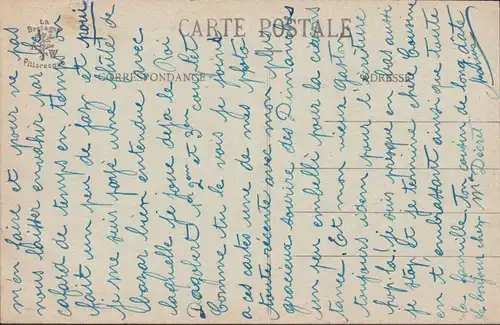 La
Bretagne
Pittoresque
CARTE POSTALE
CORRESPONDANCE
ADRESSE
m'en faire et pour ne pas
nous laisser envahir par le
cafard de temps en temps on
fait un peu de jazz et pour
je me suis payé une flûte de
bazar bien entendue avec
laquelle je joue déjà le Roi
Dagobert 1er 2ème et 3ème couplet
Comme tu le vois je joins
à ces cartes une de mes photo
toute récente avec mon plus
gracieux sourire des Dimanches
un peu embelli pour la circons
tance. Et mon vieux Gaston
toujours idem pour l'écriture
hop-la! je suis presque en bas aussi
je stop. Et je termine cher Cousin
en t'embrassant ainsi que toute
la famille. Ton cousin de longue date
Le bonjour chez Mme